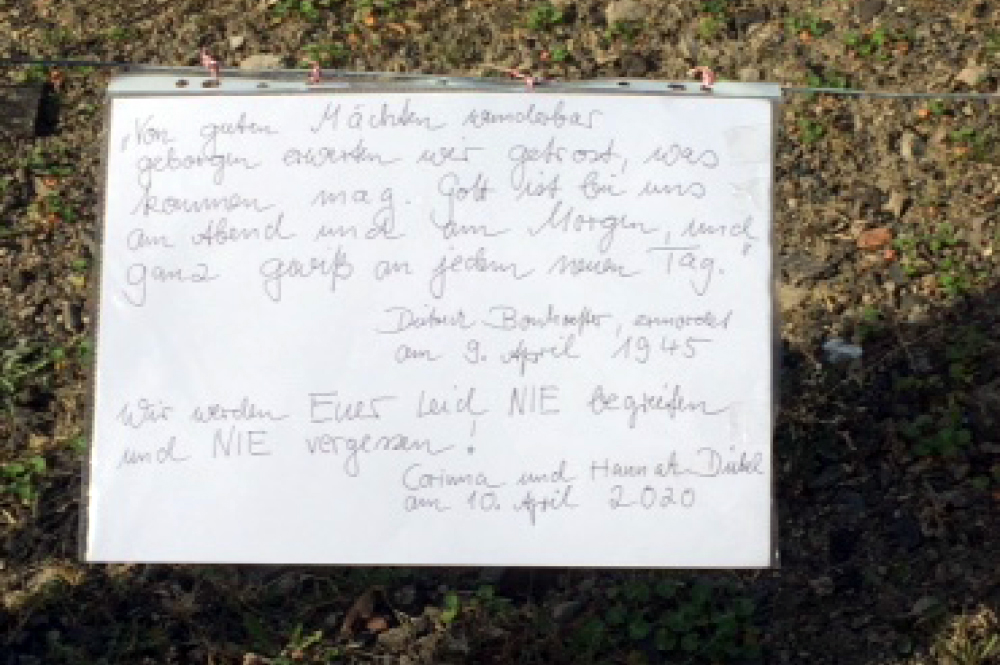 „Von guten Mächten wunderbar
geborgen erwarten wir getrost, was
kommen mag. Gott ist bei uns
am Abend und am Morgen, und
ganz gewiß an jedem neuen Tag."
Dietrich Bonhoeffer, ermordet
am 9. April 1945
Wir werden Euer Leid NIE begreifen
und NIE vergessen!
Corinna und Hannah
am 10. April 2020